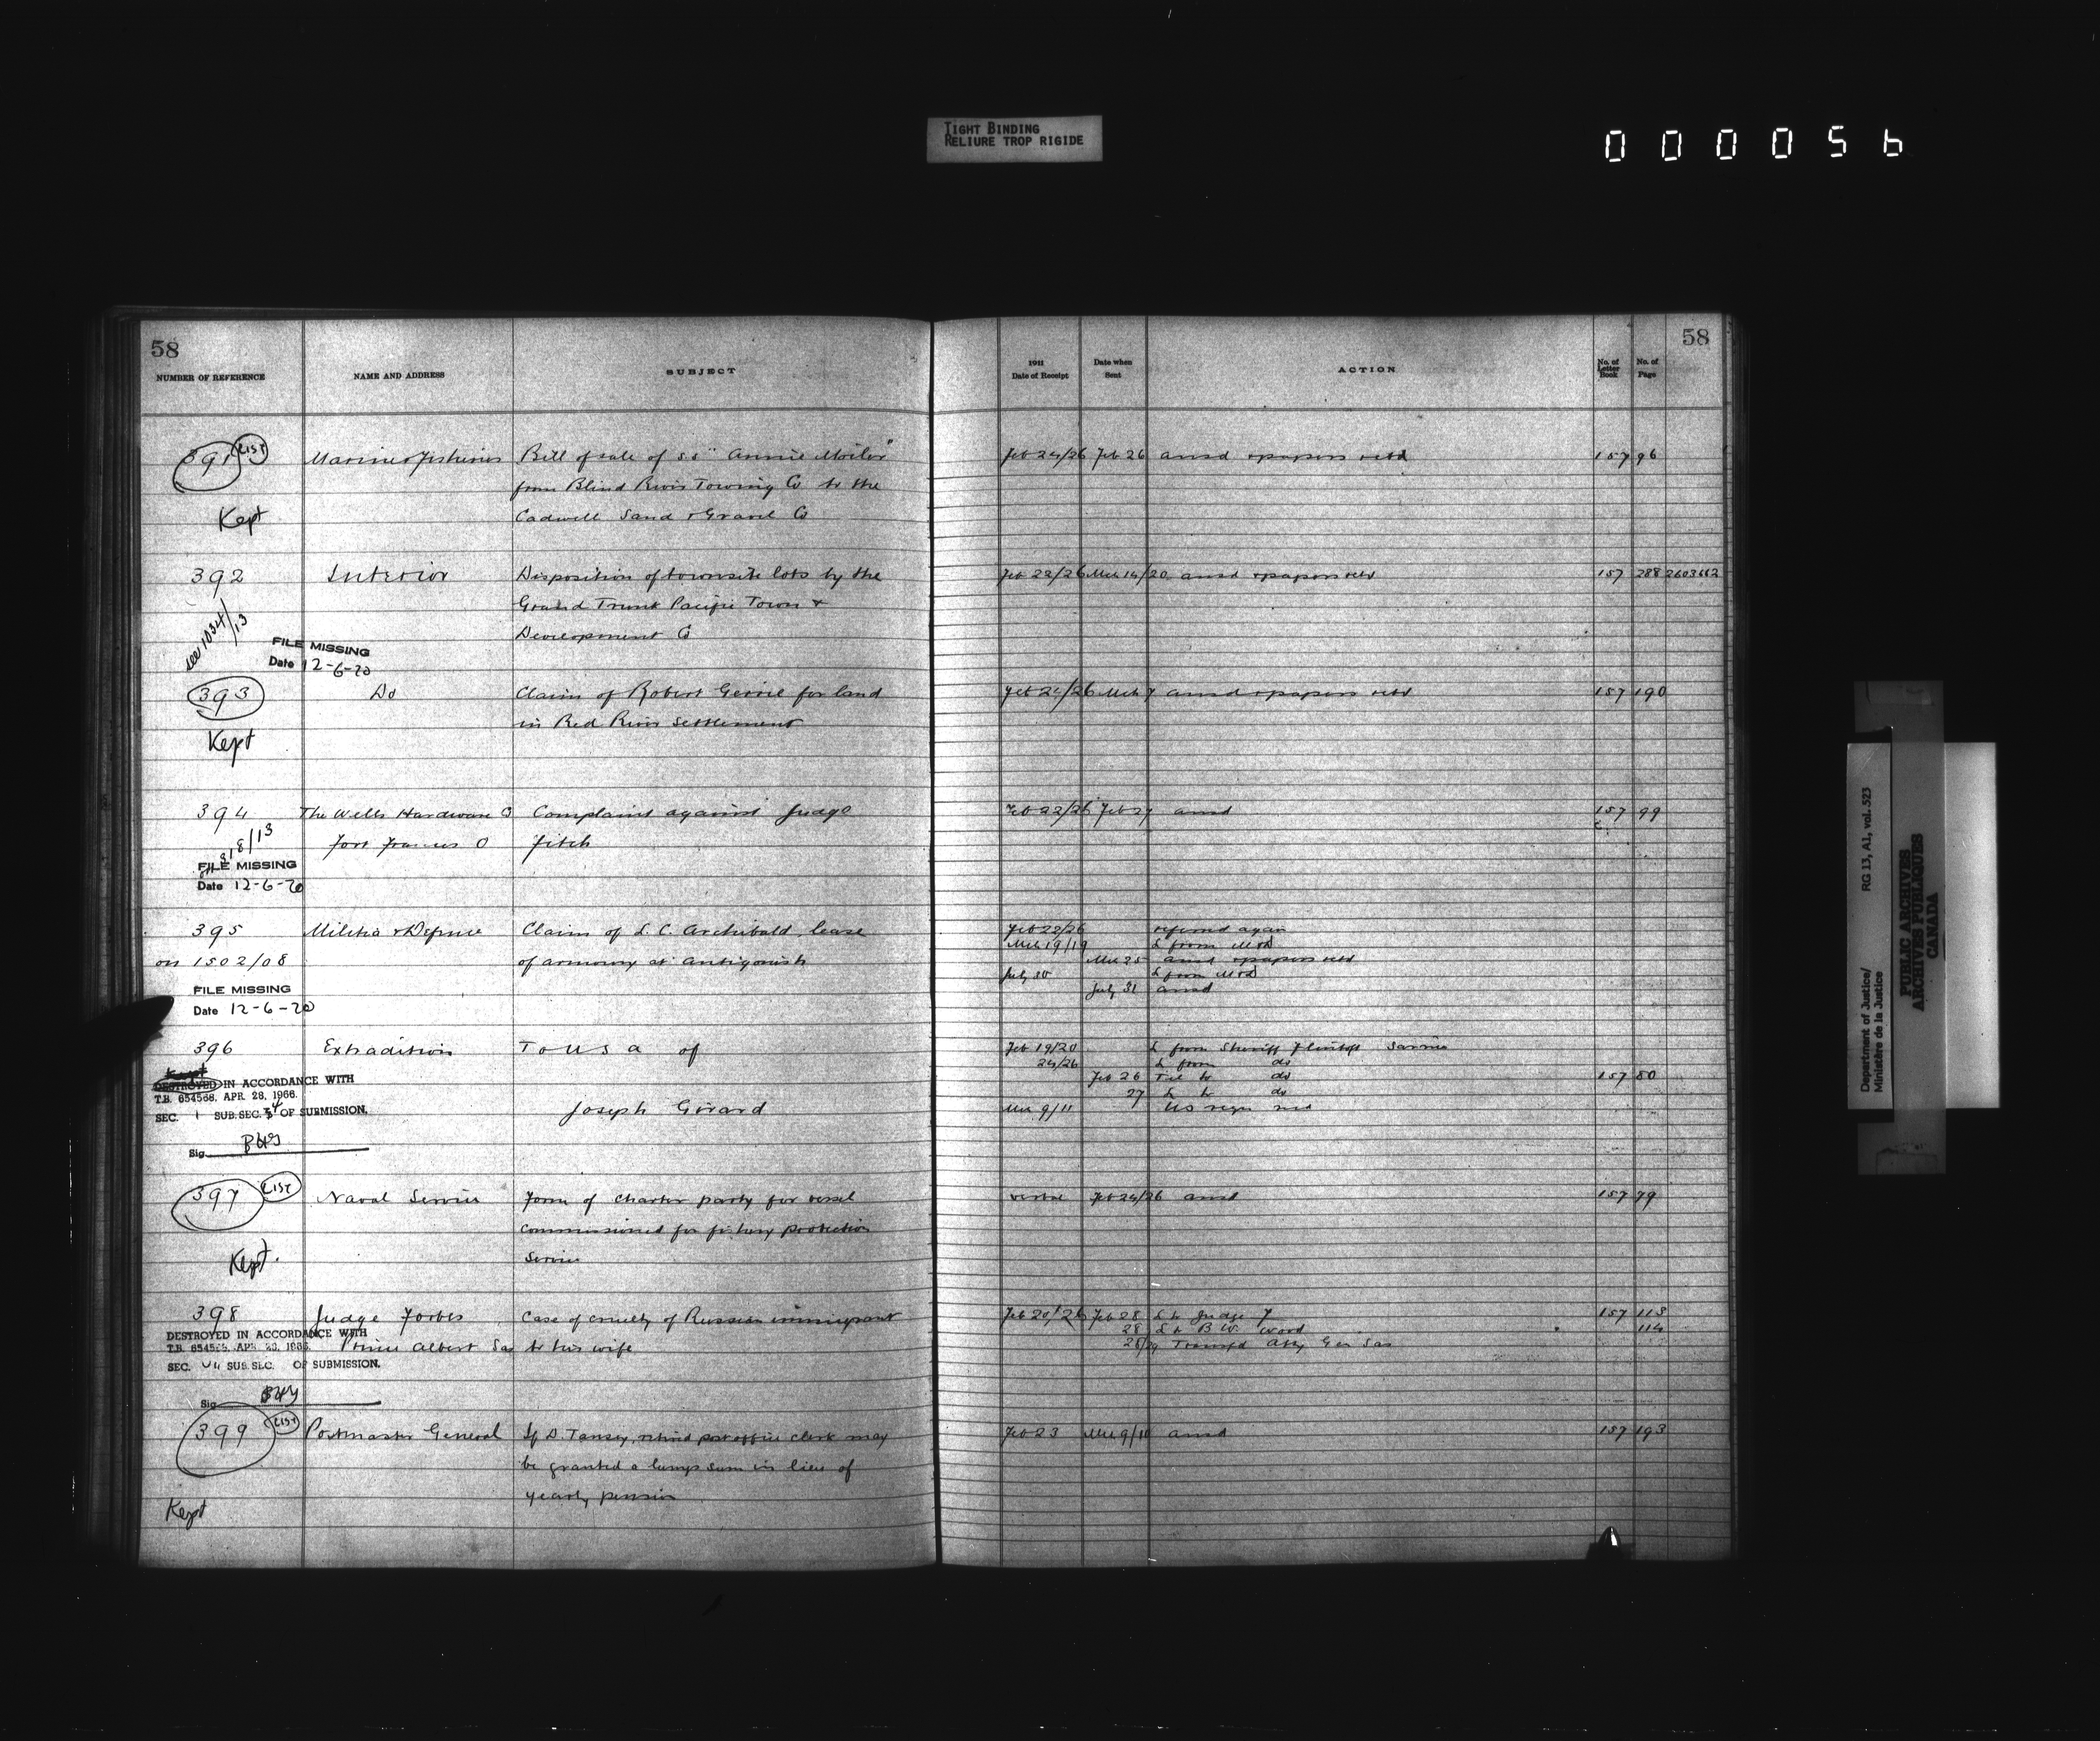 TIGHT BINDING
RELIURE TROP RIGIDE
0 0 0 0 5 6
58
NUMBER OF REFERENCE NAME AND ADDRESS SUBJECT
1911 Date of Receipt Date when Sent ACTION No. of Letter Book No. of Page
58
391 LIST Marine & Fisheries Bill of sale of ss "Annie Moiler" Feb 24/26 Feb 26 ansd & papers retd 157 96
from Blind River Towing Co to the
Kept Cadwell Sand & Gravel Co
392 Interior Disposition of townsite lots by the Feb 22/26 Mch 14/20 ansd & papers retd 157 288 2603662
Grand Trunk Pacific Town &
see 1034/13 Development Co
FILE MISSING
Date 12-6-70
393 Do Claim of Robert Gerrie for land Feb 24/26 Mch 7 ansd & papers retd 157 190
in Red River Settlement
Kept
394 The Wells Hardware Co Complaint against Judge Feb 22/26 Feb 27 ansd 157 99
818/13 Fort Frances O Fitch
FILE MISSING
Date 12-6-70
395 Militia & Defence Claim of L. C. Archibald, lease Feb 22/26 referred again
Mch 19/19 L from M&D
on 1502/08 of armoury at Antigonish Mch 25 ansd & papers retd
July 30 L from M&D
July 31 ansd
FILE MISSING
Date 12-6-70
396 Extradition To U S a of Feb 19/20 L from Sheriff Flintoft Sarnia
24/26 L from do
Kept Feb 26 Tel to do 157 80
DESTROYED IN ACCORDANCE WITH 27 L to do
T.B. 654568, APR. 28, 1966.
SEC. 1 SUB. SEC. 4 OF SUBMISSION. Joseph Girard Mch 9/11 US reqn recd
Sig
397 LIST Naval Service Form of charter party for vessel verbal Feb 24/26 ansd 157 79
commissioned for fishery protection
Kept. Service
398 Judge Forbes Case of cruelty of Russian immigrant Feb 20/26 Feb 28 L to Judge F 157 113
28 L to B. W. Word 114
DESTROYED IN ACCORDANCE WITH
T.B. 654568, APR. 28, 1966 Prince Albert Sas to his wife 28/29 Transfd Atty Gen Sas
SEC. SUB. SEC. OF SUBMISSION.
Sig
399 LIST Postmaster General If D. Tansey, retired post office clerk may Feb 23 Mch 9/10 ansd 157 193
be granted a lump sum in lieu of
yearly pension
Kept
Department of Justice/ RG 13, A1, vol. 523
Ministère de la Justice
PUBLIC ARCHIVES
ARCHIVES PUBLIQUES
CANADA